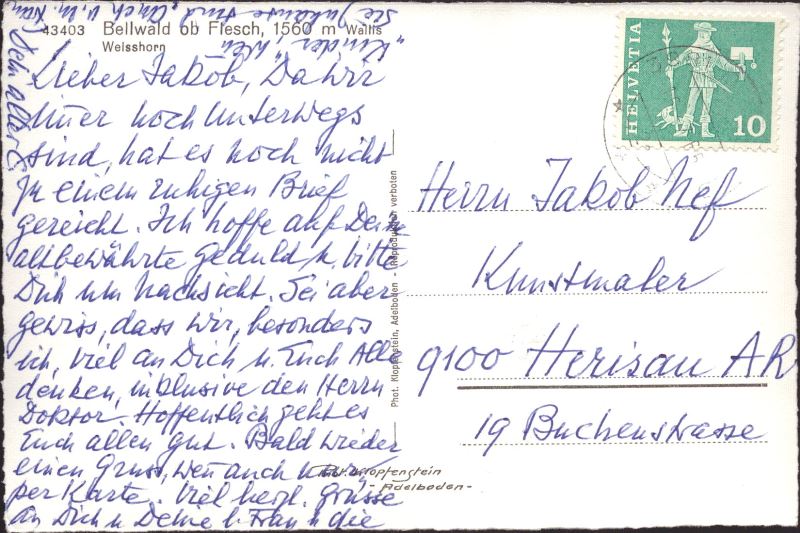 43403 Bellwald ob Fiesch, 1560 m Wallis
Weisshorn
Lieber Jakob, Da wir
immer noch unterwegs
sind, hat es noch nicht
zu einem ruhigen Brief
gereicht. Ich hoffe auf Deine
altbewährte Geduld u. bitte
Dich um Nachsicht. Sei aber
gewiss, dass wir, besonders
ich, viel an Dich u. Euch Alle
denken, inklusive den Herrn
Doktor Hoffentlich geht es
Euch allen gut. Bald wieder
einen Gruss, wenn auch nur
per Karte. Viel herzl. Grüsse
an Dich u Deine l. Frau u die
"Kinder", wenn
sie zuhause sind. Auch v. m. Frau
Dein alter
Phot. Klopfenstein, Adelboden - Reproduktion verboten
Phot. Klopfenstein
- Adelboden -
HELVETIA
10
Herrn Jakob Nef
Kunstmaler
9100 Herisau AR
19 Buchenstrasse